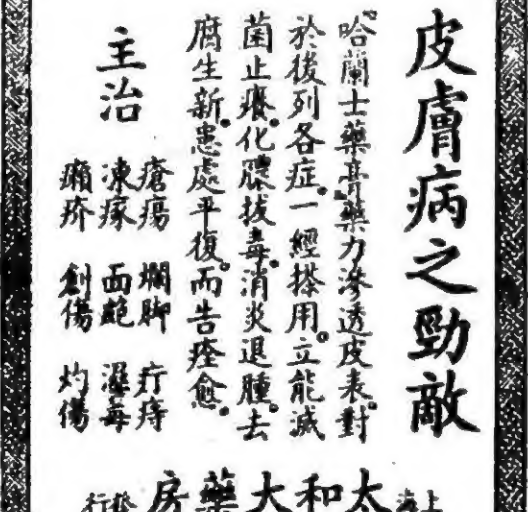 皮膚病之勁敵
哈蘭士藥膏。藥力滲透皮表。對
於後列各症。一經搽用。立能滅
菌止癢。化膿拔毒。消炎退腫。去
腐生新。患處平復。而告痊愈。
主治
瘡瘍 爛脚 疔痔
凍瘃 面皰 濕毒
癩疥 創傷 灼傷
上海
太和大藥房
發行